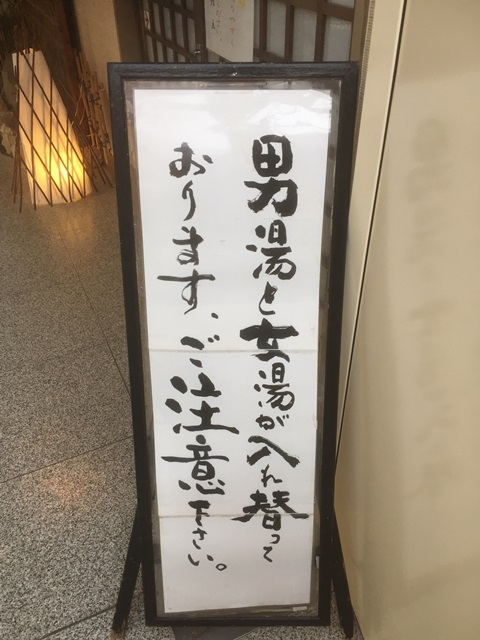 男湯と女湯が入れ替って
おります、ご注意下さい。